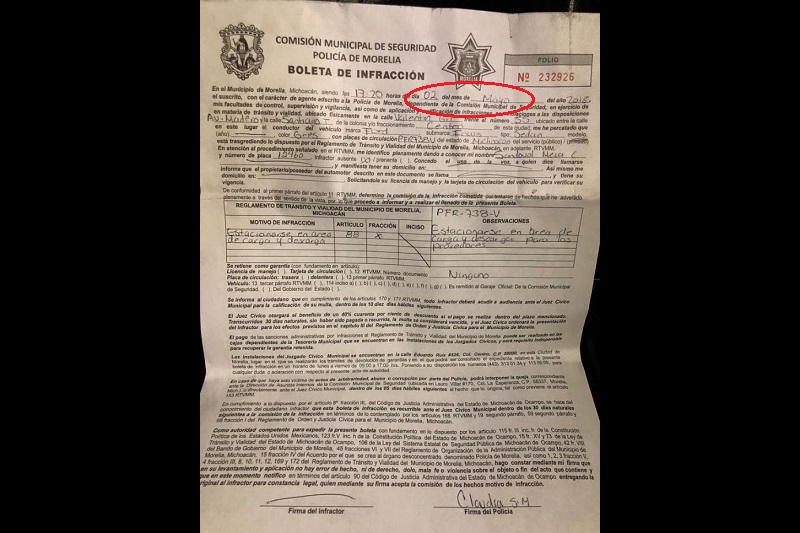 COMISIÓN MUNICIPAL DE SEGURIDAD
POLICÍA DE MORELIA
BOLETA DE INFRACCIÓN
FOLIO
Nº 232926
En el Municipio de Morelia, Michoacán, siendo las 17:20 horas del día 02 del mes de Mayo del año 2018
el suscrito, con el carácter de agente adscrito a la Policía de Morelia, dependiente de la Comisión Municipal de Seguridad, en ejercicio de
mis facultades de control, supervisión y vigilancia, así como de aplicación y calificación de infracciones a las disposiciones
en materia de tránsito y vialidad, ubicado físicamente en la calle Valentín frente el número 55 ubicado entre la calle
Av. Madero y la calle Santiago T. de la colonia y/o fraccionamiento Centro de esta ciudad; me he percatado que
en este lugar el conductor del vehículo marca Ford submarca tipo Sedan
(año) color Gris con placas de circulación PFR738V del estado de Michoacan del servicio (público) / (privado)
está trasgrediendo lo dispuesto por el Reglamento de Tránsito y Vialidad del Municipio de Morelia, Michoacán.
En atención al procedimiento señalado en el RTVMM, me identifico plenamente dando a conocer mi nombre Sandoval
y número de placa 12460 infractor ausente (x) / presente ( ), Concedo el uso de la voz, a quien dice llamarse
y manifiesta tener su domicilio en Así mismo me
informa que el propietario/poseedor del automotor descrito en este documento se llama y tiene su
vigencia. Solicitándole su licencia de manejo y la tarjeta de circulación del vehículo para verificar su
De conformidad al primer párrafo del artículo 11 RTVMM, determino la comisión de la infracción de hechos que he advertido
plenamente a través del sentido de la vista, por lo que procedo a informar y a realizar el llenado de la presente Boleta.
REGLAMENTO DE TRÁNSITO Y VIALIDAD DEL MUNICIPIO DE MORELIA, MICHOACÁN
PFR-738-V
MOTIVO DE INFRACCIÓN ARTÍCULO FRACCIÓN INCISO OBSERVACIONES
Estacionarse en area de carga y descarga 88 X
Estacionarse en area de carga y descarga para los proveedores
Se retiene como garantía (con fundamento en artículo):
Licencia de manejo ( ), Tarjeta de circulación ( ), 12 RTVMM, Número documento Ninguno
Placa de circulación: trasera ( ) delantera ( ), 13 primer párrafo RTVMM,
Vehículo: 13 tercer párrafo RTVMM ( ), 114 inciso a) ( ), b) ( ), c) ( ), d) ( ), e) ( ), f) ( ), g) ( ), Es remitido al Garaje Oficial: De la Comisión Municipal
de Seguridad. ( ), Del Gobierno del Estado ( ).
Se informa al ciudadano que en cumplimiento de los artículos 170 y 171 RTVMM, todo infractor deberá acudir a audiencia ante el Juez Cívico
Municipal para la calificación de su multa, dentro de los 10 días hábiles siguientes.
El Juez Cívico otorgará el beneficio de un 40% cuarenta por ciento de descuento si el pago se realiza dentro del plazo mencionado.
Transcurridos 30 días naturales, sin haber sido pagada o recurrida, la multa se considerará vencida, y el Juez Cívico ordenará la presentación
del Infractor para los efectos previstos en el capítulo III del Reglamento de Orden y Justicia Cívica para el Municipio de Morelia.
El pago de las sanciones administrativas por infracciones al Reglamento de Tránsito y Vialidad del Municipio de Morelia, puede ser realizado en las
cajas dependientes de la Tesorería Municipal que se encuentran en las instalaciones de los Juzgados Cívicos, y será requisito indispensable
para recuperar la garantía retenida.
Las instalaciones del Juzgado Cívico Municipal se encuentran en la calle Eduardo Ruiz Col. Centro, C.P. 58000, en esta Ciudad de
Morelia, lugar en el que se realizarán los trámites de devolución de garantías y en el que podrá ser consultado el expediente relativo a la presente
boleta de infracción en un horario de lunes a viernes de 09:00 a 17:00 hrs. Poniendo a su disposición los números (443) para
cualquier duda o aclaración con respecto al presente acto de autoridad.
En caso de que haya sido víctima de actos de arbitrariedad, abuso o corrupción por parte del Policía, podrá interponer la queja correspondiente
ante la Dirección de Asuntos Internos de la Comisión Municipal de Seguridad
En cumplimiento a lo dispuesto por el artículo 8º fracción III, del Código de Justicia Administrativa del Estado de Michoacán de Ocampo, se hace del
conocimiento del ciudadano infractor que esta boleta de infracción es recurrible ante el Juez Cívico Municipal dentro de los 30 días naturales
siguientes a la comisión de la infracción
y 69 fracción I del Reglamento de Orden y Justicia Cívica para el Municipio de Morelia, Michoacán.
Como autoridad competente para expedir la presente boleta con fundamento en lo dispuesto por el artículo 115 fr. III inc. h de la Constitución
Política de los Estados Unidos Mexicanos, 123 fr.V inc. h de la Constitución Política del Estado de Michoacán de Ocampo, 15 fr. XV y 73 de la Ley de
Tránsito y Vialidad del Estado de Michoacán de Ocampo, 106 de la Ley del Sistema Estatal de Seguridad Pública de Michoacán de Ocampo, 42 fr. VIII
del Bando de Gobierno del Municipio de Morelia, 45 fracciones VI y VII del Reglamento de Organización de la Administración Pública del Municipio de
Morelia, Michoacán, 15 fracción IV del Acuerdo por el que se crea el órgano desconcentrado denominado Policía de Morelia, así como 1, 2, 3 fracción V,
4 fracción III, 8, 10, 11, 12, 169 y 172 Reglamento de Tránsito y Vialidad del Municipio de Morelia, Michoacán, hago constar mediante mi firma que
en su levantamiento y aplicación no hay error de hecho, ni de derecho, dolo, mala fe o violencia sobre el objeto o fin del acto que contiene y
que en este momento notifico en términos del artículo 90 del Código de Justicia Administrativa del Estado de Michoacán de Ocampo, entregando
original al infractor para constancia legal, quien mediante su firma acepta la comisión de los hechos motivo de infracción.
Claudia S.M
Firma del Infractor
Firma del Policía